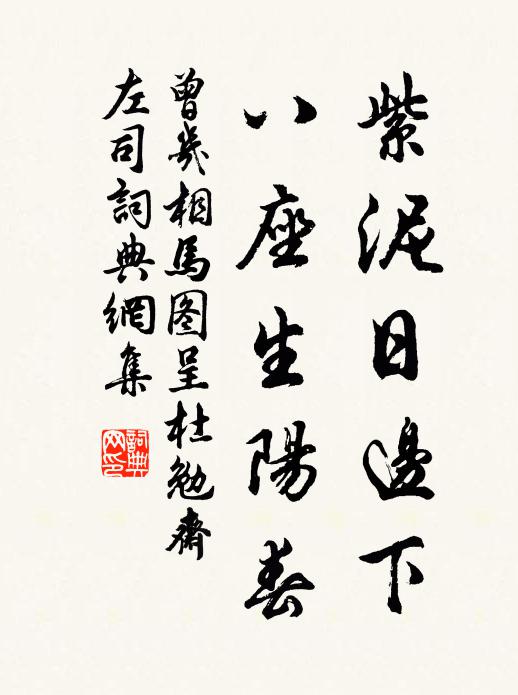 紫泥日邊下
八座生陽春
曾幾相馬图呈杜勉齋
左司詞典網集
詞典网印